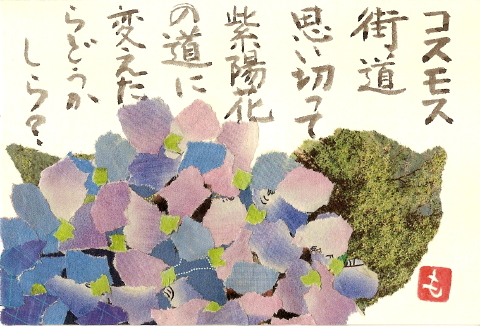 コスモス
街道
思い切って
紫陽花
の道に
変えた
らどうか
しら？
も